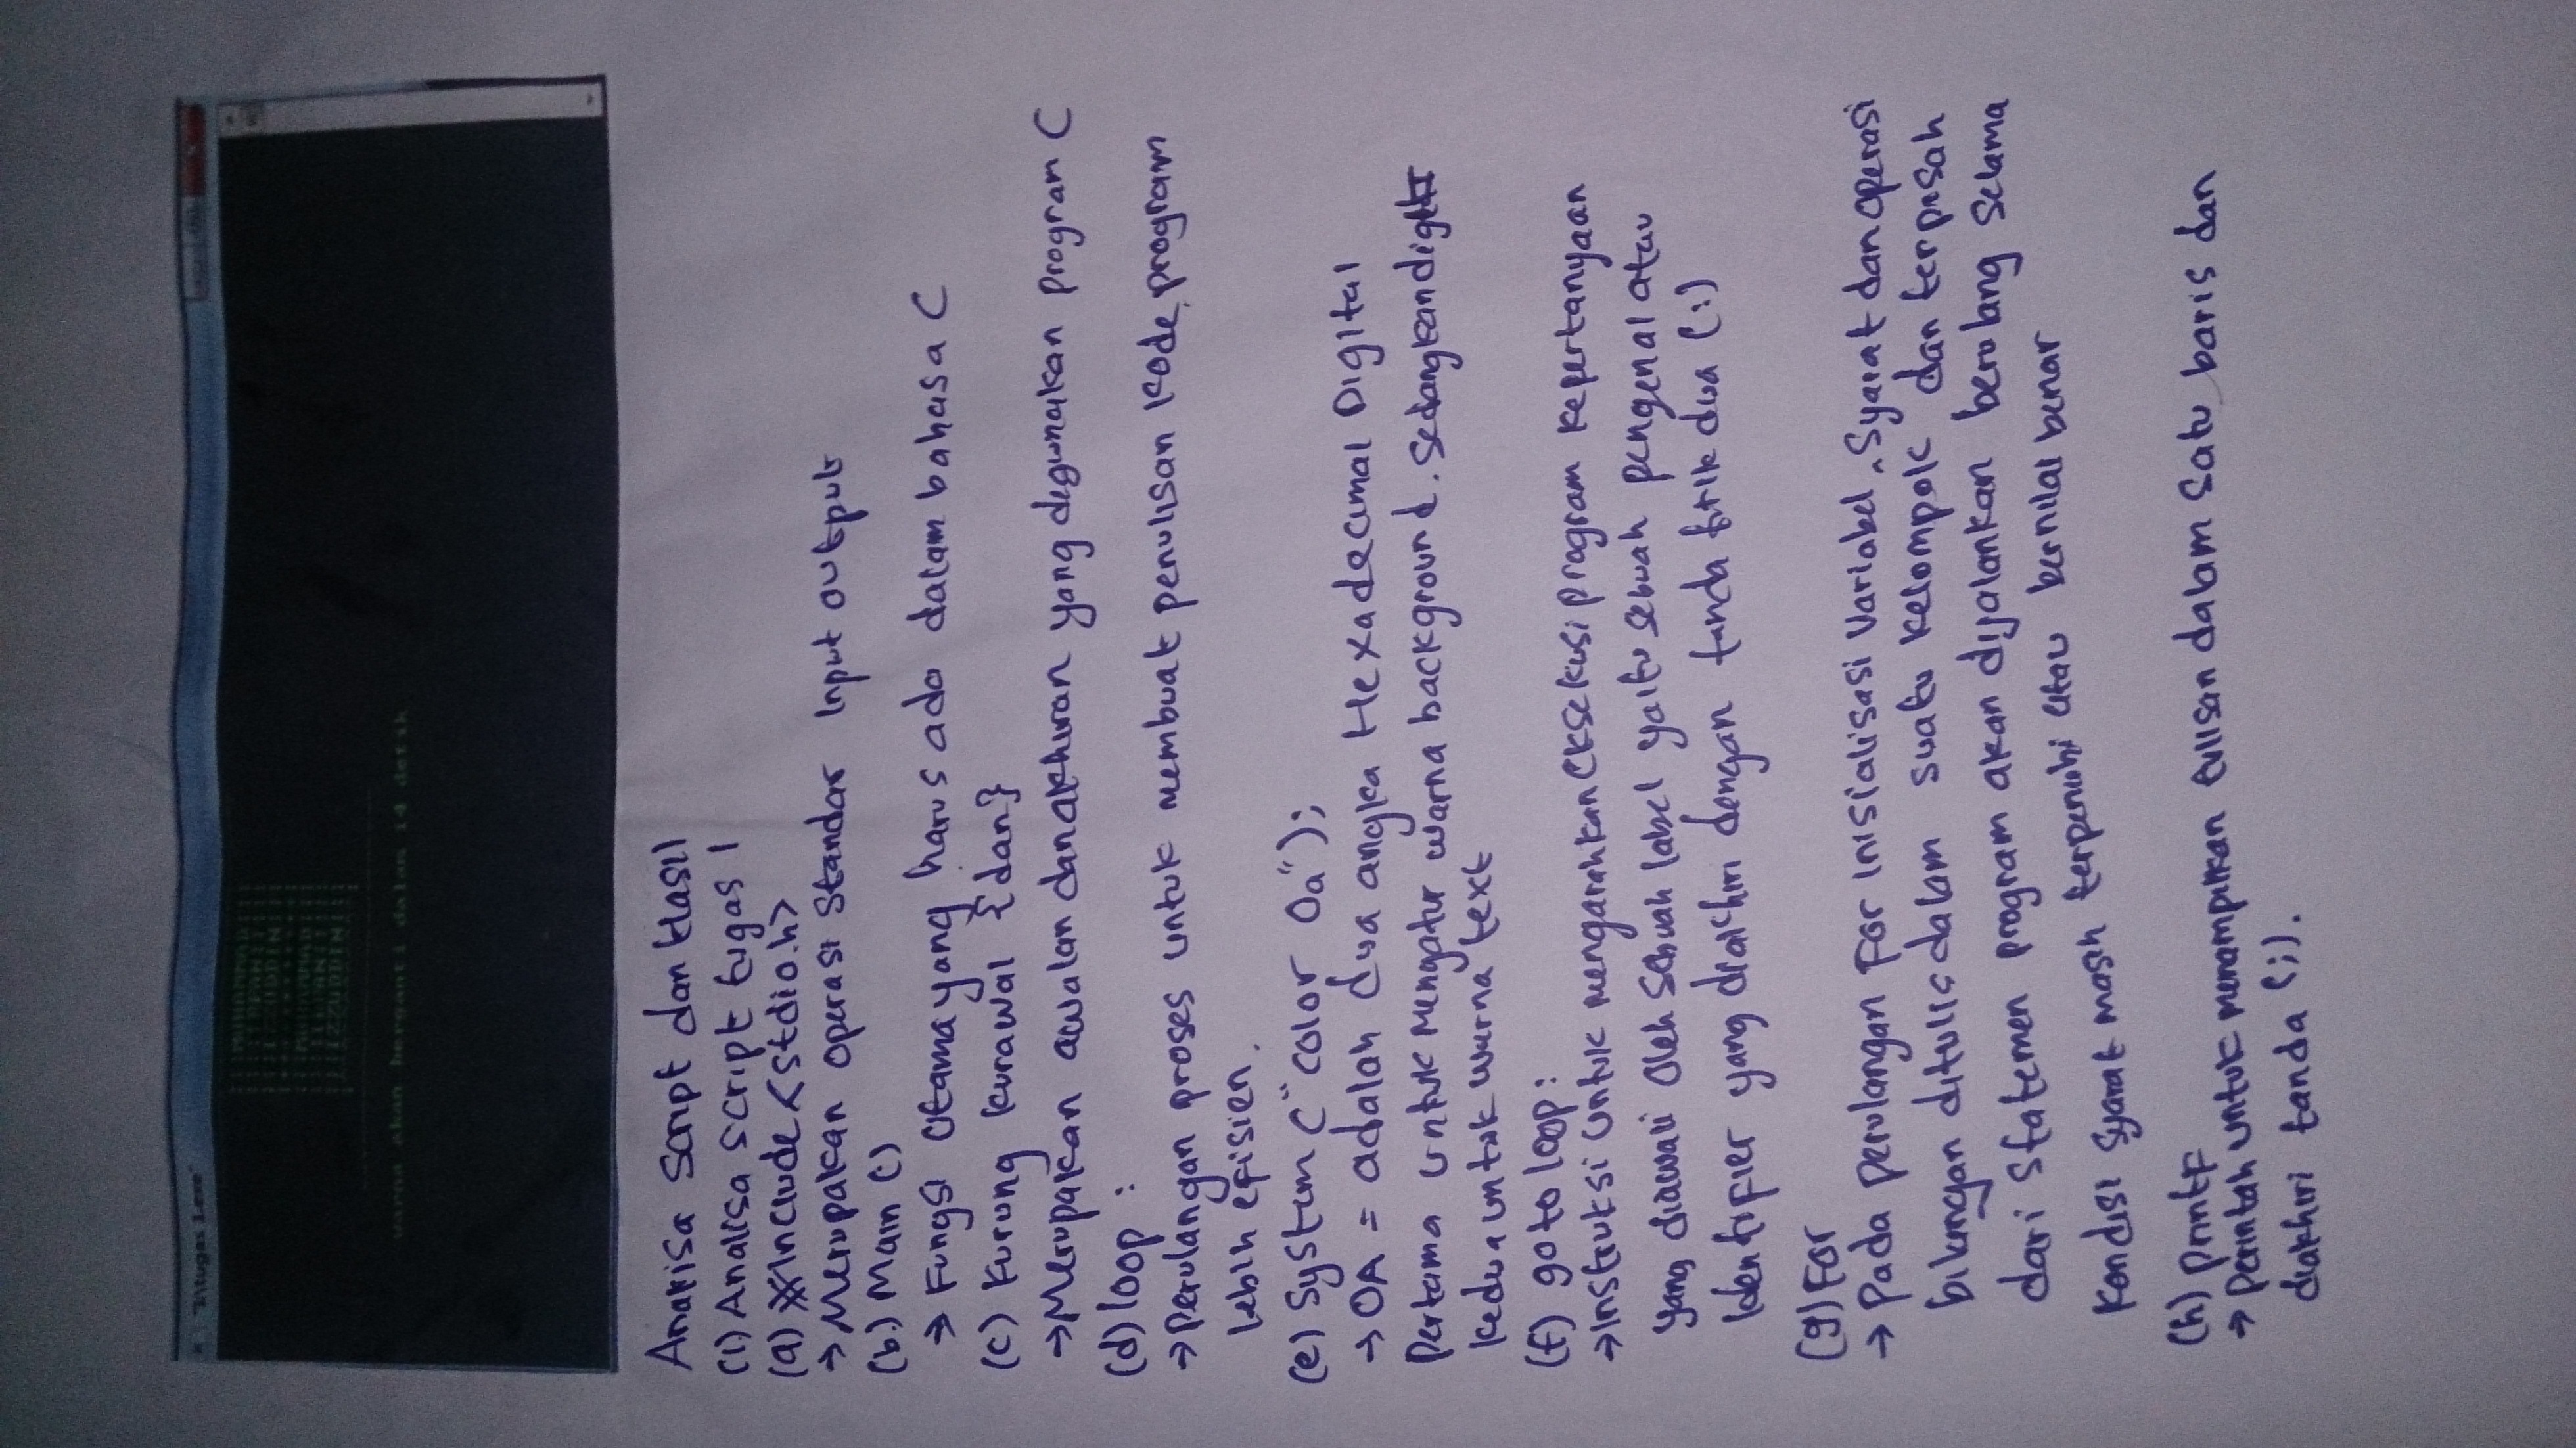 "D:\tugas 1.exe"
MUHAMMAD
IZZUDDIN
MUHAMMAD
IZZUDDIN
warna akan berganti dalam 14 detik
Analisa Script dan Hasil
(1) Analisa script tugas 1
(a) #Include <stdio.h>
→ Merupakan operasi Standar Input output
(b.) Main ()
→ Fungsi Utama yang harus ada dalam bahasa C
(c) Kurung kurawal { dan }
→ Merupakan awalan dan akhiran yang digunakan program C
(d) loop :
→ Perulangan proses untuk membuat penulisan kode program
lebih efisien.
(e) System ("color 0a");
→ 0A = adalah dua angka Hexadecimal Digital
Pertama untuk mengatur warna background. Sedangkan digit
kedua untuk warna text
(f) goto loop:
→ Instruksi untuk mengarahkan eksekusi program kepertanyaan
yang diawali oleh sebuah label yaitu sebuah pengenal atau
Identifier yang diakhiri dengan tanda titik dua (:)
(g) For
→ Pada perulangan For inisialisasi Variabel, Syarat dan operasi
bilangan ditulis dalam suatu kelompok dan terpisah
dari Statemen program akan dijalankan berulang selama
Kondisi Syarat masih terpenuhi atau bernilai benar
(h) printf
→ Perintah untuk menampilkan tulisan dalam Satu baris dan
diakhiri tanda (;).